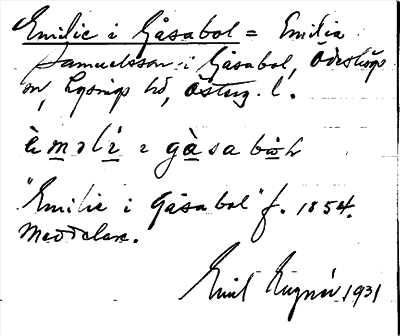 Emilie i Gåsabol = Emilia
Samuelsson i Gåsabol, Ödeshögs
sn, Lysings hd, Österg. l.
èməlì i gàsabωl
"Emilie i Gåsabol" f. 1854.
Meddelare.
Emil 1931